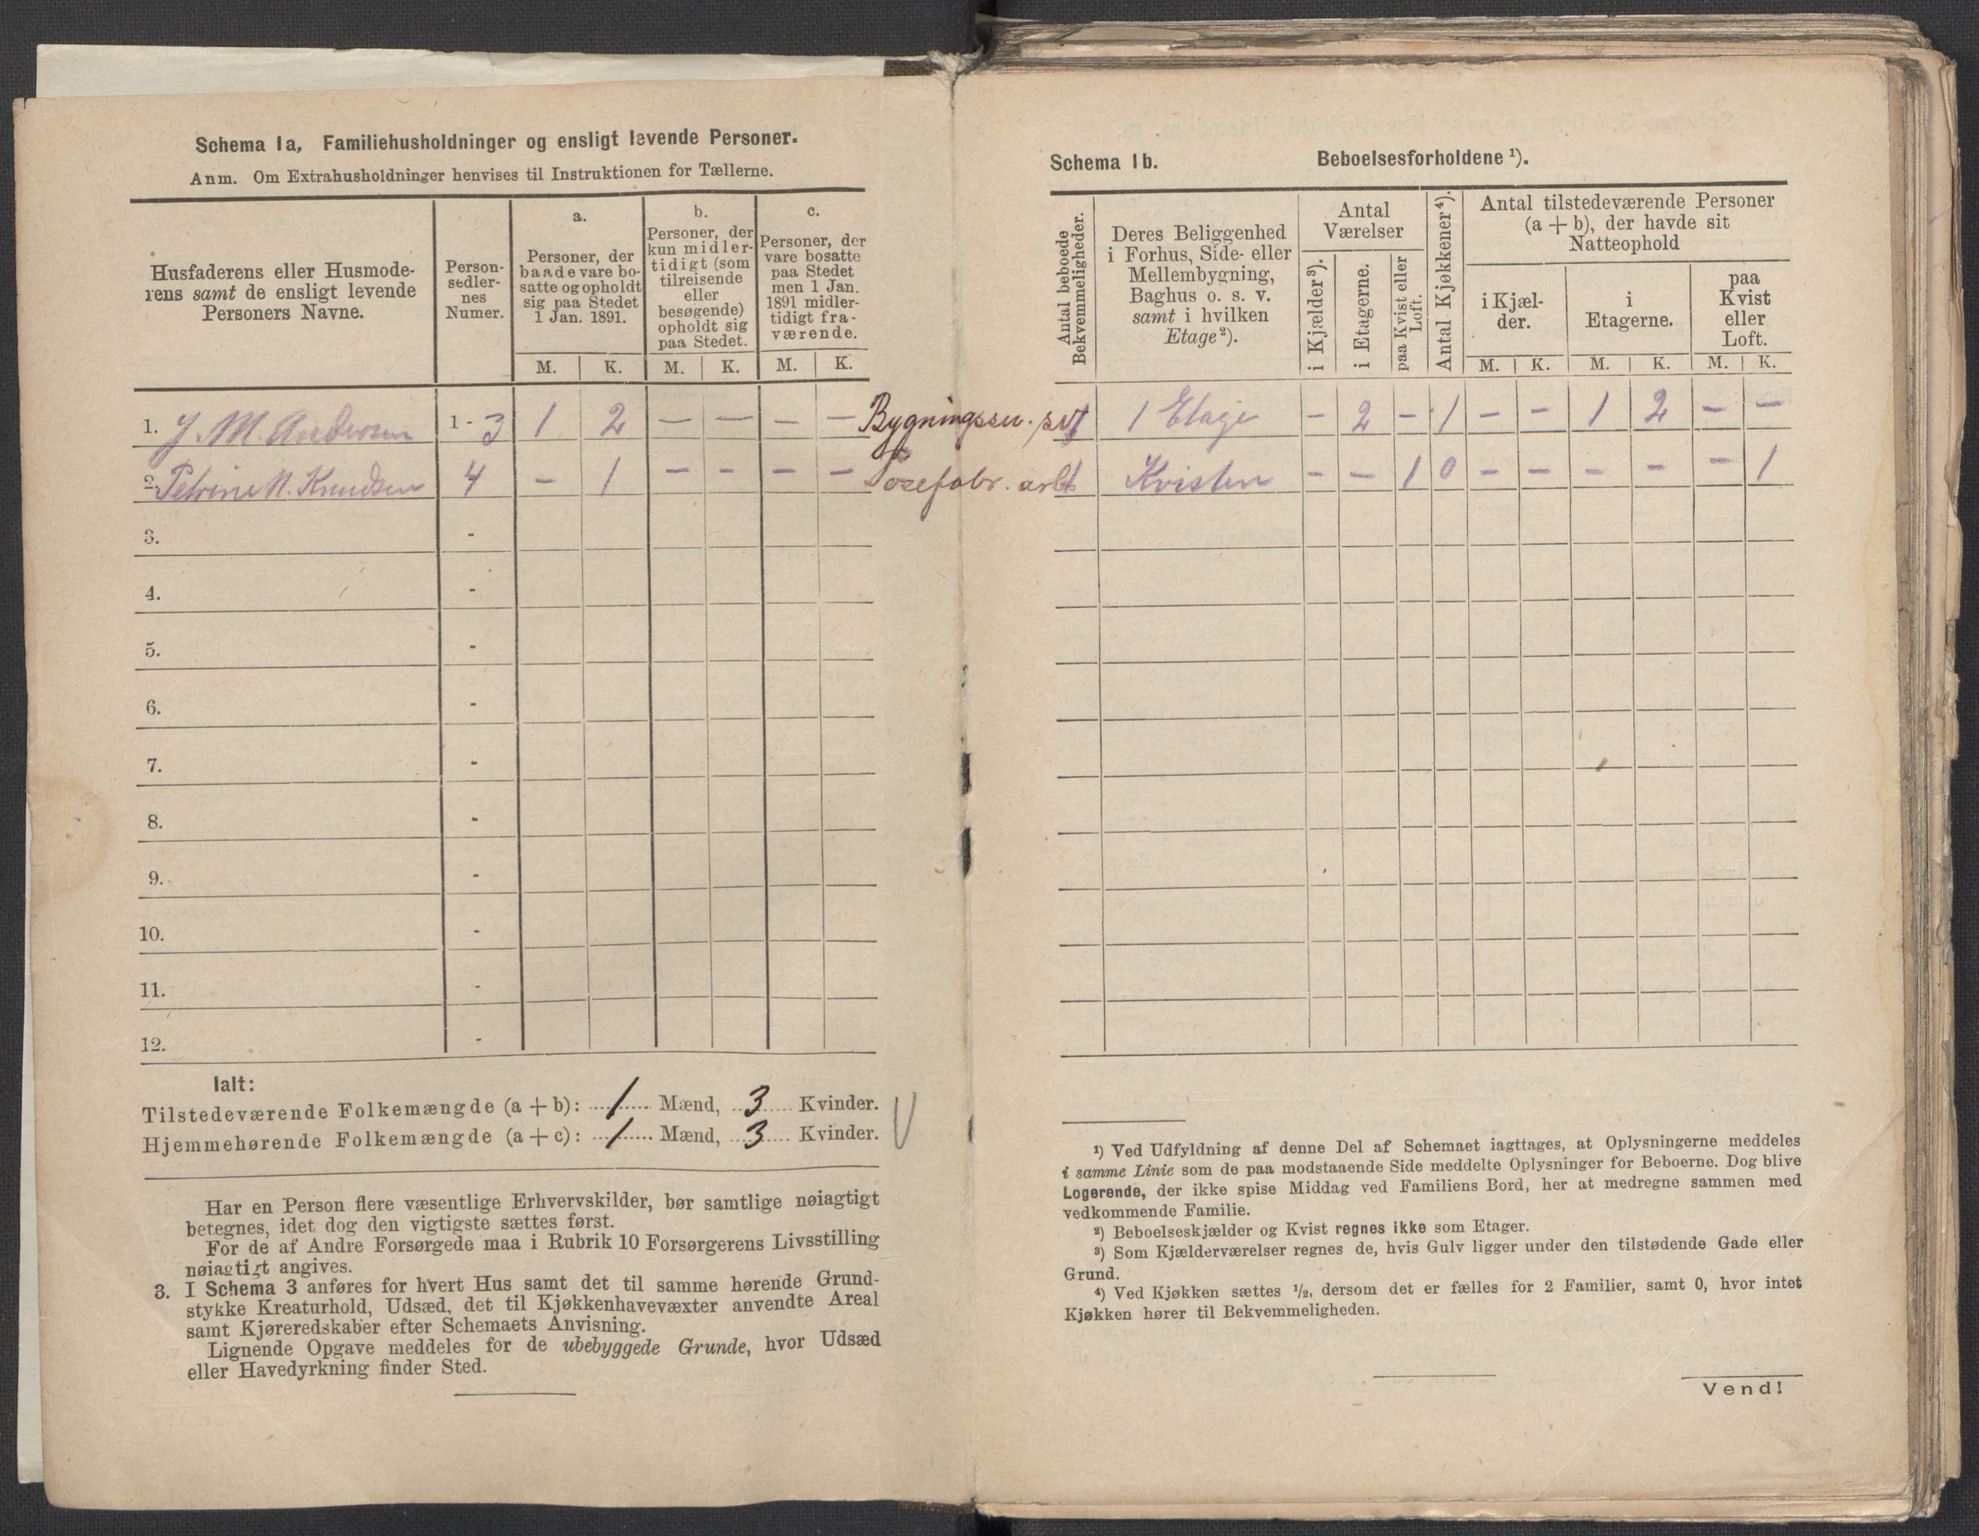 Schema 1a, Familiehusholdninger og ensligt levende Personer.
Anm. Om Extrahusholdninger henvises til Instruktionen for Tællerne.
Husfaderens eller Husmode-
rens samt de ensligt levende
Personers Navne.
Person-
sedler-
nes
Numer.
a.
Personer, der
baade vare bo-
satte og opholdt
sig paa Stedet
1 Jan. 1891.
b.
Personer, der
kun midler-
tidigt (som
tilreisende
eller
besøgende)
opholdt sig
paa Stedet.
c.
Personer, der
vare bosatte
paa Stedet
men 1 Jan.
1891 midler-
tidigt fra-
værende.
M. K. M. K. M. K.
1. J. M. Andersen 1 - 3 1 2 — — — — Bygningssn.
2. Petrine N. Knudsen 4 — 1 — — — — Posefabr. arb
3. -
4. -
5. -
6. -
7. -
8. -
9. -
10. -
11. -
12. -
Ialt:
Tilstedeværende Folkemængde (a + b): 1 Mænd, 3 Kvinder.
Hjemmehørende Folkemængde (a + c): 1 Mænd, 3 Kvinder.
Har en Person flere væsentlige Erhvervskilder, bør samtlige nøiagtigt
betegnes, idet dog den vigtigste sættes først.
For de af Andre Forsørgede maa i Rubrik 10 Forsørgerens Livsstilling
nøiagtigt angives.
3. I Schema 3 anføres for hvert Hus samt det til samme hørende Grund-
stykke Kreaturhold, Udsæd, det til Kjøkkenhavevæxter anvendte Areal
samt Kjøreredskaber efter Schemaets Anvisning.
Lignende Opgave meddeles for de ubebyggede Grunde, hvor Udsæd
eller Havedyrkning finder Sted.
Schema 1b. Beboelsesforholdene ¹).
Antal beboede
Bekvemmeligheder.
Deres Beliggenhed
i Forhus, Side- eller
Mellembygning,
Baghus o. s. v.
samt i hvilken
Etage²).
Antal
Værelser
i Kjælder³).
i Etagerne.
paa Kvist eller
Loft.
Antal Kjøkkener⁴).
Antal tilstedeværende Personer
(a + b), der havde sit
Natteophold
i Kjæl-
der.
i
Etagerne.
paa
Kvist
eller
Loft.
M. K. M. K. M. K.
1 1 Etage — 2 — 1 — — 1 2 — —
1 Kvisten — — 1 0 — — — — — 1
¹) Ved Udfyldning af denne Del af Schemaet iagttages, at Oplysningerne meddeles
i samme Linie som de paa modstaaende Side meddelte Oplysninger for Beboerne. Dog blive
Logerende, der ikke spise Middag ved Familiens Bord, her at medregne sammen med
vedkommende Familie.
²) Beboelseskjælder og Kvist regnes ikke som Etager.
³) Som Kjælderværelser regnes de, hvis Gulv ligger under den tilstødende Gade eller
Grund.
⁴) Ved Kjøkken sættes ½, dersom det er fælles for 2 Familier, samt 0, hvor intet
Kjøkken hører til Bekvemmeligheden.
Vend!